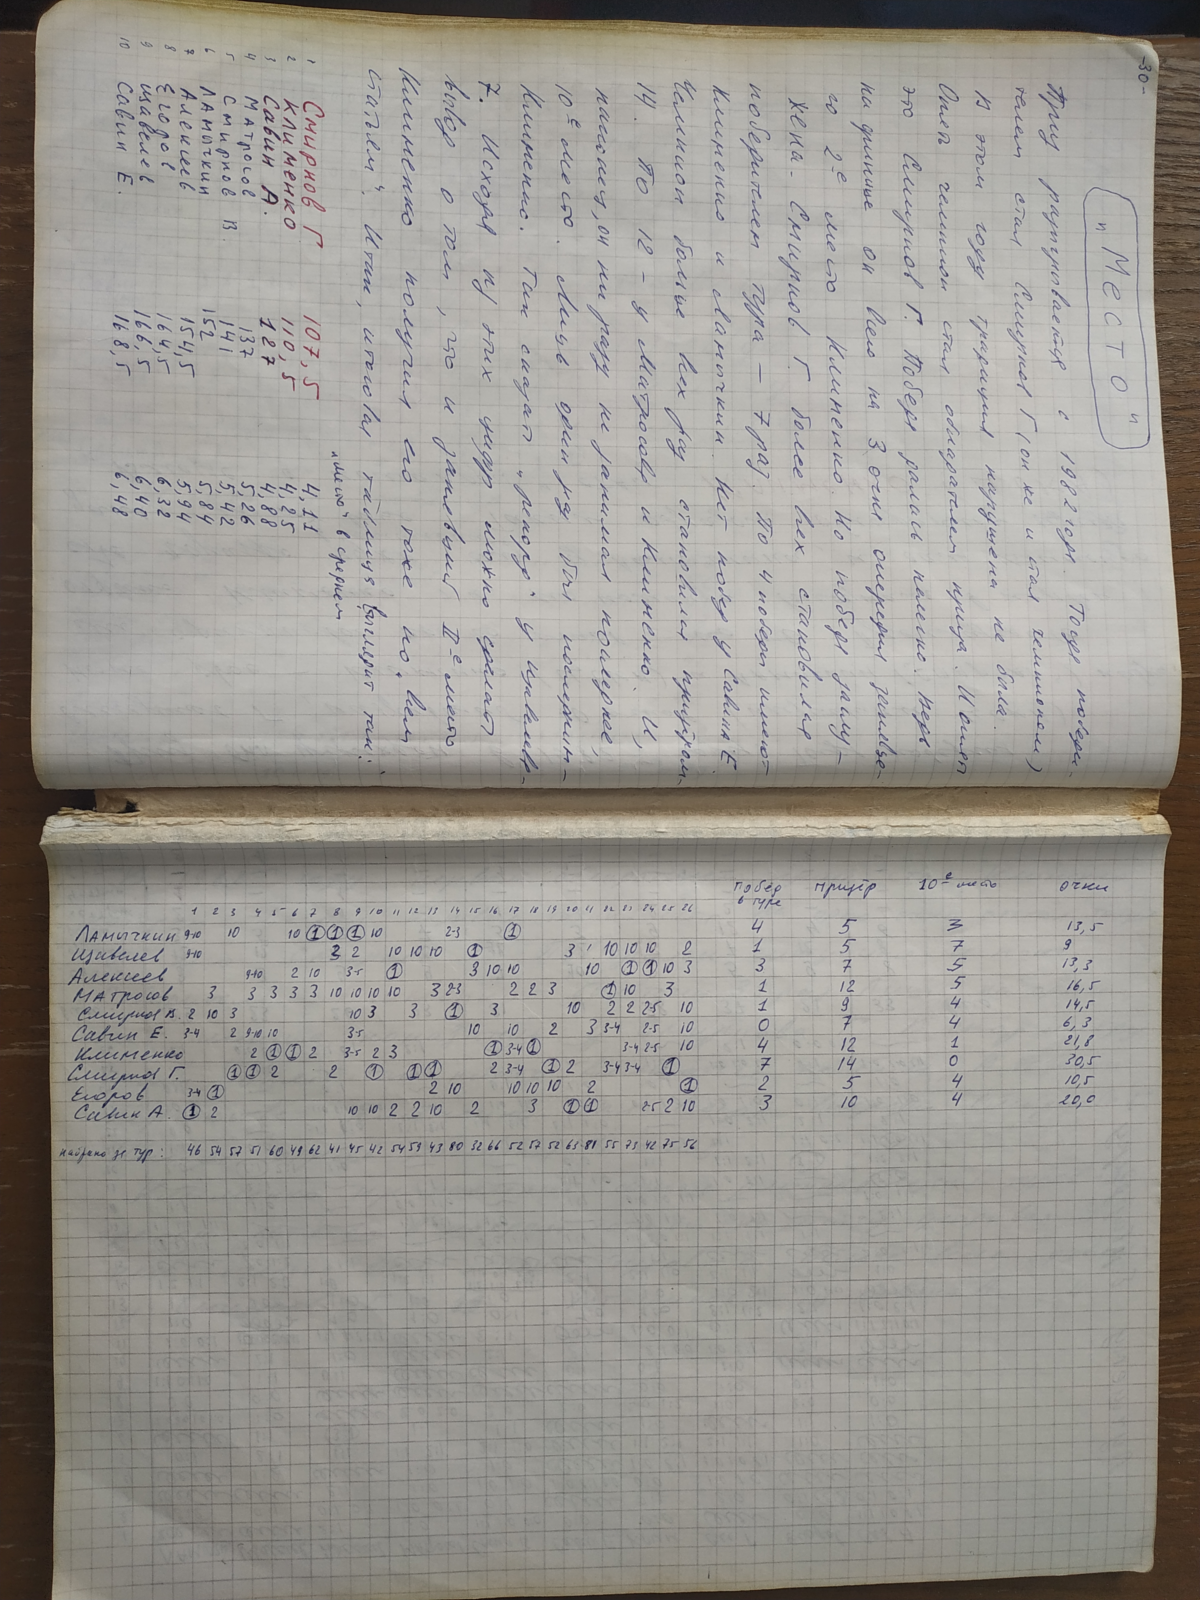 -30-
"Место"
Приз разыгрывается с 1982 года. Тогда победи-
телем стал Смирнов Г, (он же и стал чемпионом)
В этом году традиция нарушена не была.
Опять чемпион стал обладателем приза. И опять
это Смирнов Г. Победа далась нелегко. Ведь
на финише он всего на 3 очка опередил занявше-
го 2е место Клименко. Но победа заслу-
жена. Смирнов Г. более всех становился
победителем тура – 7 раз. По 4 победы имеют
Клименко и Ламычкин. Нет побед у Савина Е.
Чемпион больше всех раз становился призером
14. По 12 – у Матросова и Клименко. И,
наконец, он ни разу не занимал последнее,
10е место. Лишь один раз был последним
Клименко. Так сказать "рекорд" у Щавелева-
7. Исходя из этих цифр можно сделать
вывод о том, что и занявший IIе место
Клименко получил его тоже по "всем
статьям". Итак, итоговая таблица выглядит так:
"место" в среднем
1 Смирнов Г 107,5 4,11
2 Клименко 110,5 4,25
3 Савин А. 127 4,88
4 Матросов 137 5,26
5 Смирнов В. 141 5,42
6 Ламычкин 152 5,84
7 Алексеев 154,5 5,94
8 Егоров 164,5 6,32
9 Щавелев 166,5 6,40
10 Савин Е. 168,5 6,48
Побед в туре Призёр 10е место очки
1 2 3 4 5 6 7 8 9 10 11 12 13 14 15 16 17 18 19 20 21 22 23 24 25 26
Ламычкин 9-10 10 10 1 1 1 10 2-3 1 4 5 3 13,5
Щавелев 9-10 3 2 10 10 10 1 3 1 10 10 10 2 1 5 7 9
Алексеев 9-10 2 10 3-5 1 3 10 10 10 1 1 10 3 3 7 5 13,3
Матросов 3 3 3 3 3 10 10 10 10 3 2-3 2 2 3 1 10 3 1 12 5 16,5
Смирнов В. 2 10 3 10 3 3 1 3 10 2 2 2-5 10 1 9 4 14,5
Савин Е. 3-4 2 9-10 10 3-5 10 10 2 3 3-4 2-5 10 0 7 4 6,3
Клименко 2 1 1 2 3-5 2 3 1 3-4 1 3-4 2-5 10 4 12 1 21,8
Смирнов Г. 1 1 2 2 1 1 1 2 3-4 1 2 3-4 3-4 1 7 14 0 30,5
Егоров 3-4 1 2 10 10 10 10 2 1 2 5 4 10,5
Савин А. 1 2 10 10 2 2 10 2 3 1 1 2-5 2 10 3 10 4 20,0
найдено за тур: 46 54 57 51 60 49 62 41 45 42 54 59 43 80 32 66 52 57 52 63 81 55 73 42 75 56